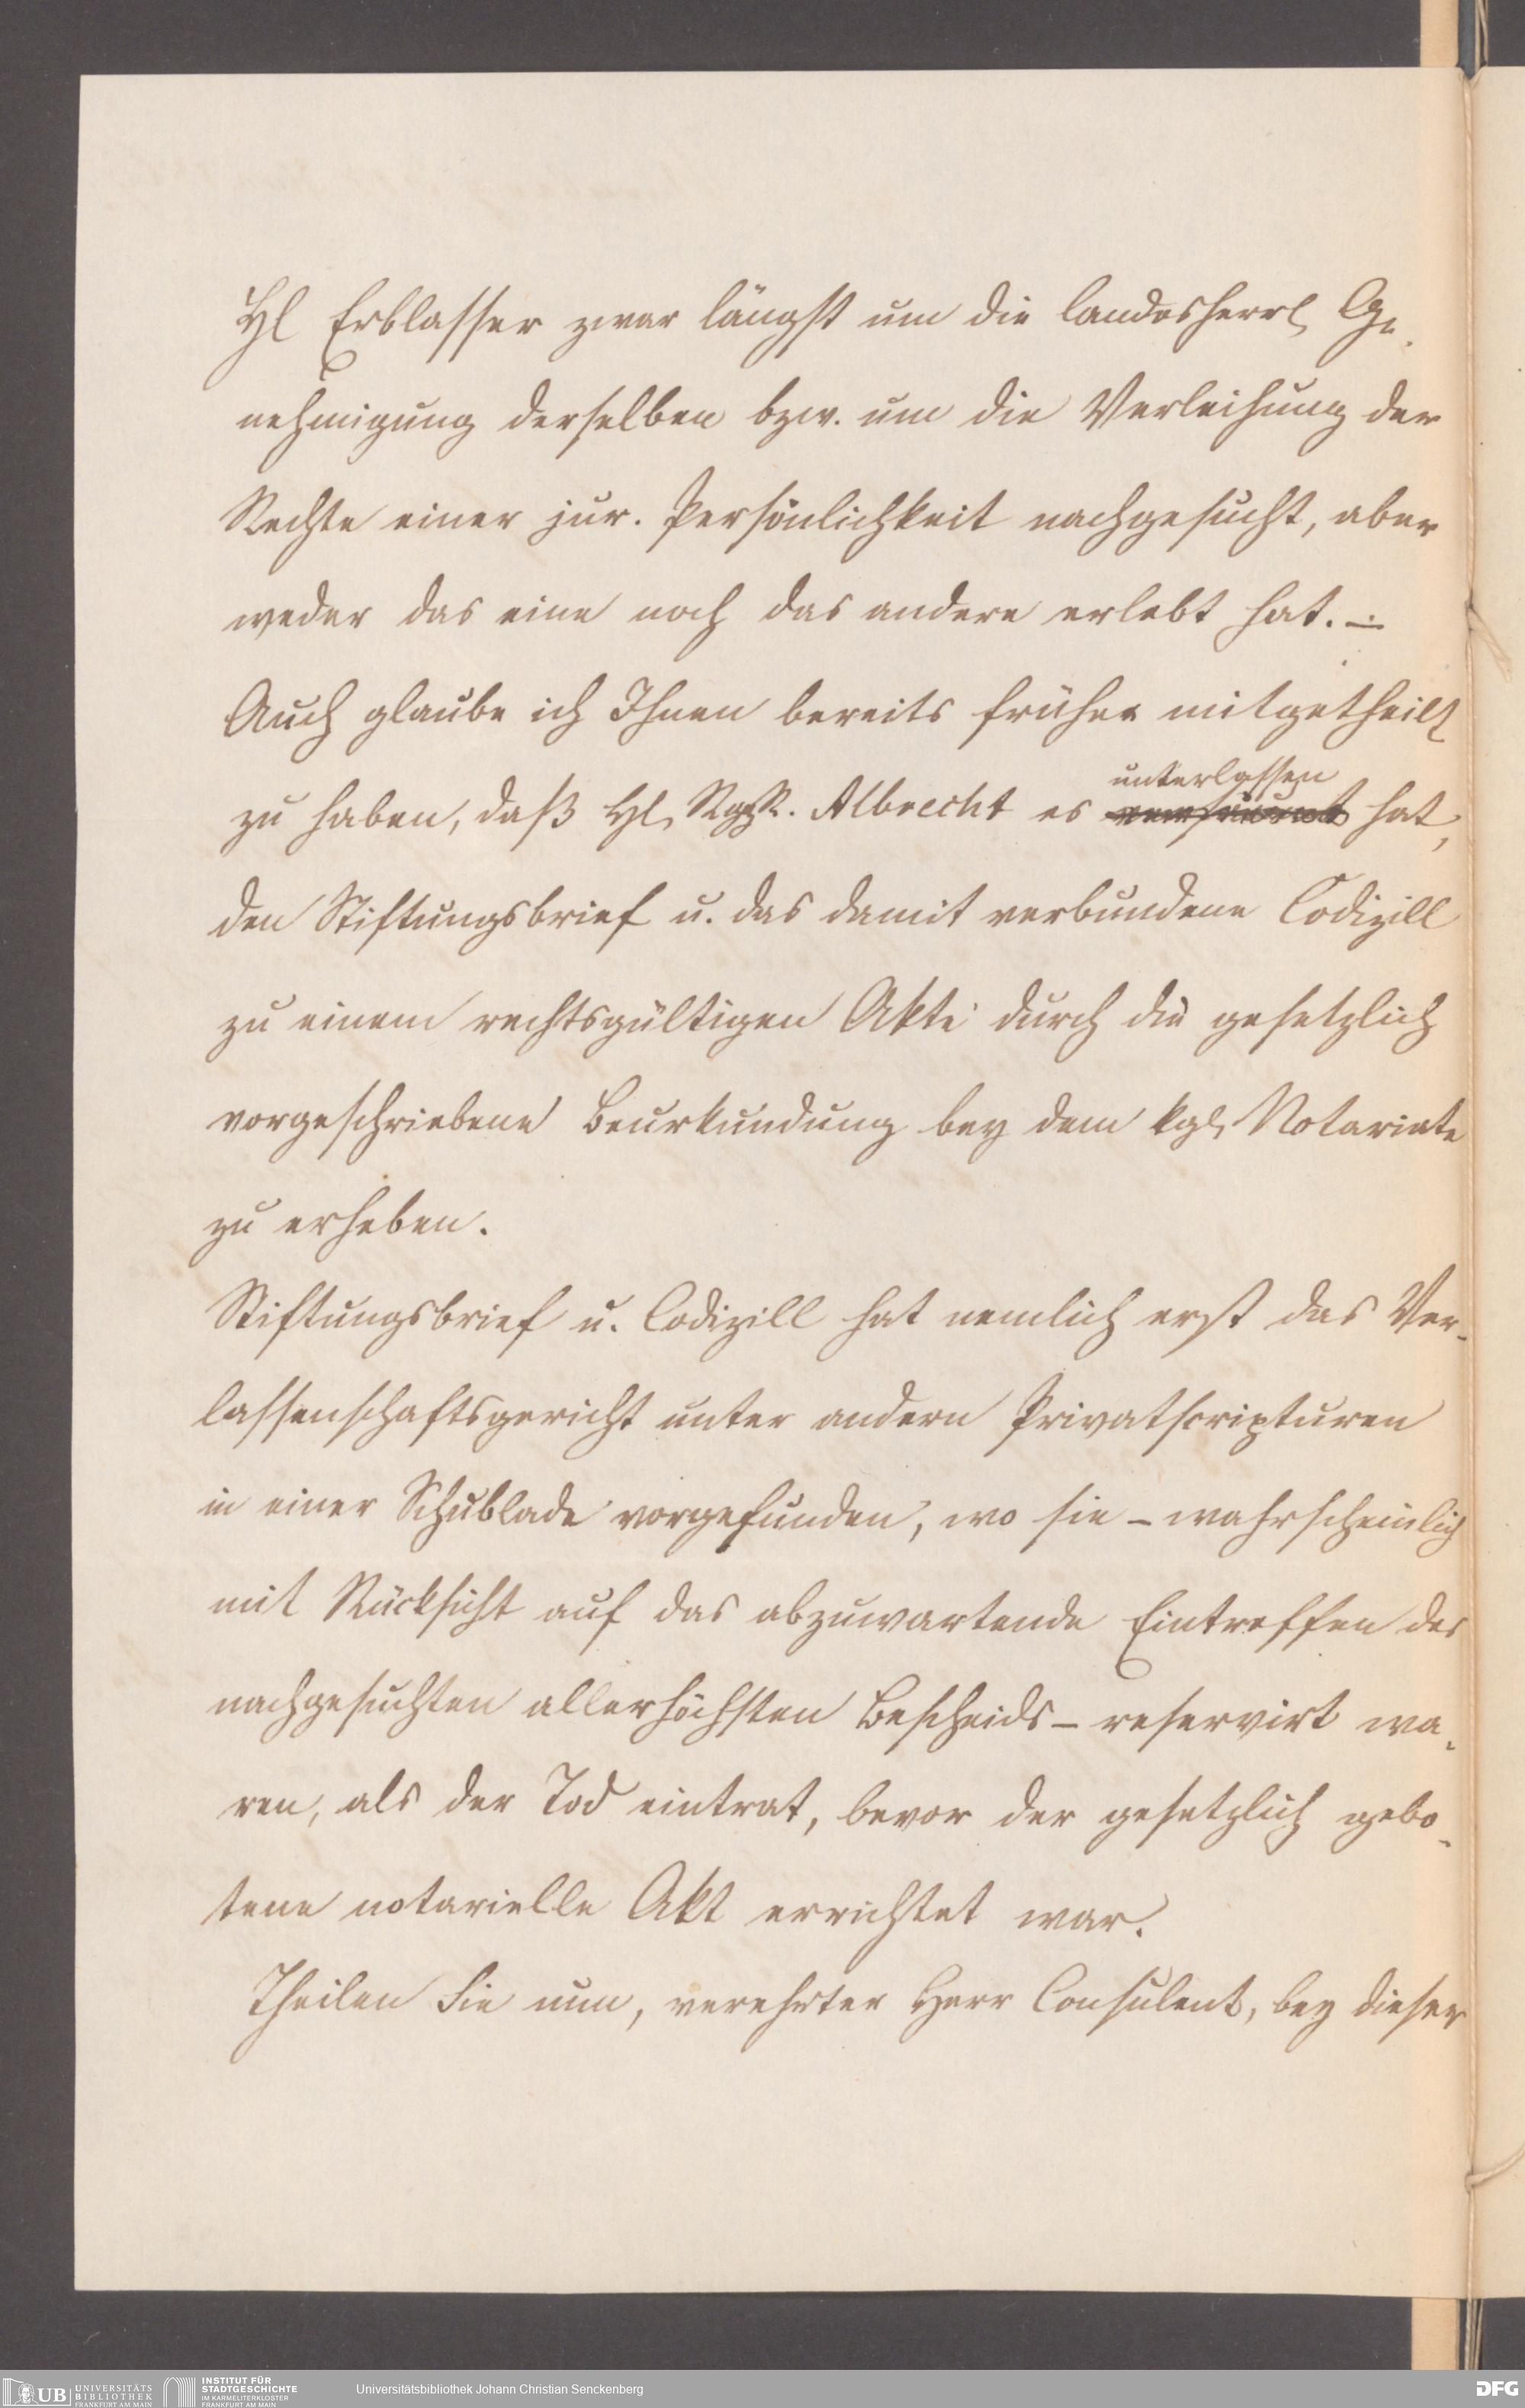 Hl Erblasser zwar längst um die landesherrl. Ge-
nehmigung derselben bzw. um die Verleihung der
Rechte einer jur. Persönlichkeit nachgesucht, aber
weder das eine noch das andere erlebt hat. –
Auch glaube ich Ihnen bereits früher mitgetheilt
unterlassen
zu haben, daß Hl. RggsR. Albrecht es versäumt hat,
den Stiftungsbrief u. das damit verbundene Codizill
zu einem rechtsgültigen Akte durch die gesetzlich
vorgeschriebene Beurkundung bey dem kgl. Notariate
zu erheben.
Stiftungsbrief u. Codizill hat nemlich erst das Ver-
lassenschaftsgericht unter andern Privatscripturen
in einer Schublade vorgefunden, wo sie – wahrscheinlich
mit Rücksicht auf das abzuwartende Eintreffen des
nachgesuchten allerhöchsten Bescheids – reservirt wa-
ren, als der Tod eintrat, bevor der gesetzlich gebo-
tene notarielle Akt errichtet war.
Theilen Sie nun, verehrter Herr Consulent, bey dieser
UB UNIVERSITÄTS
BIBLIOTHEK
FRANKFURT AM MAIN
INSTITUT FÜR
STADTGESCHICHTE
IM KARMELITERKLOSTER
FRANKFURT AM MAIN
Universitätsbibliothek Johann Christian Senckenberg
DFG